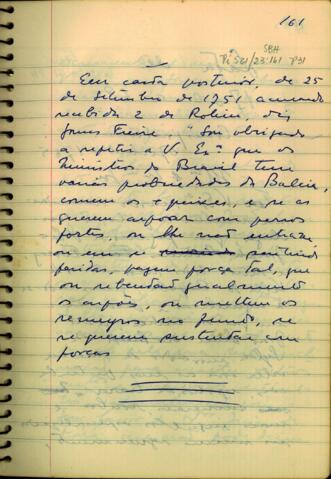 161
SBH
Pi 561/23:161 P31
Em carta posterior, de 25
de Setembro de 1751 acusando
recebida 2 de Rolim, diz
Gomes Freire, "Sou obrigado
a repetir a V. Exª que os
Ministros do Brasil tem
varias propriedades da Baleia,
comem os + peixes, e se as
querem arpoar com pernos
fortes, ou lhe não entram
ou em se sentindo
feridas, pagem força tal, que
ou rebentão igualmente
os arpões, ou mettem os
remeyros no fundo, se
se querem sustentar com
forças